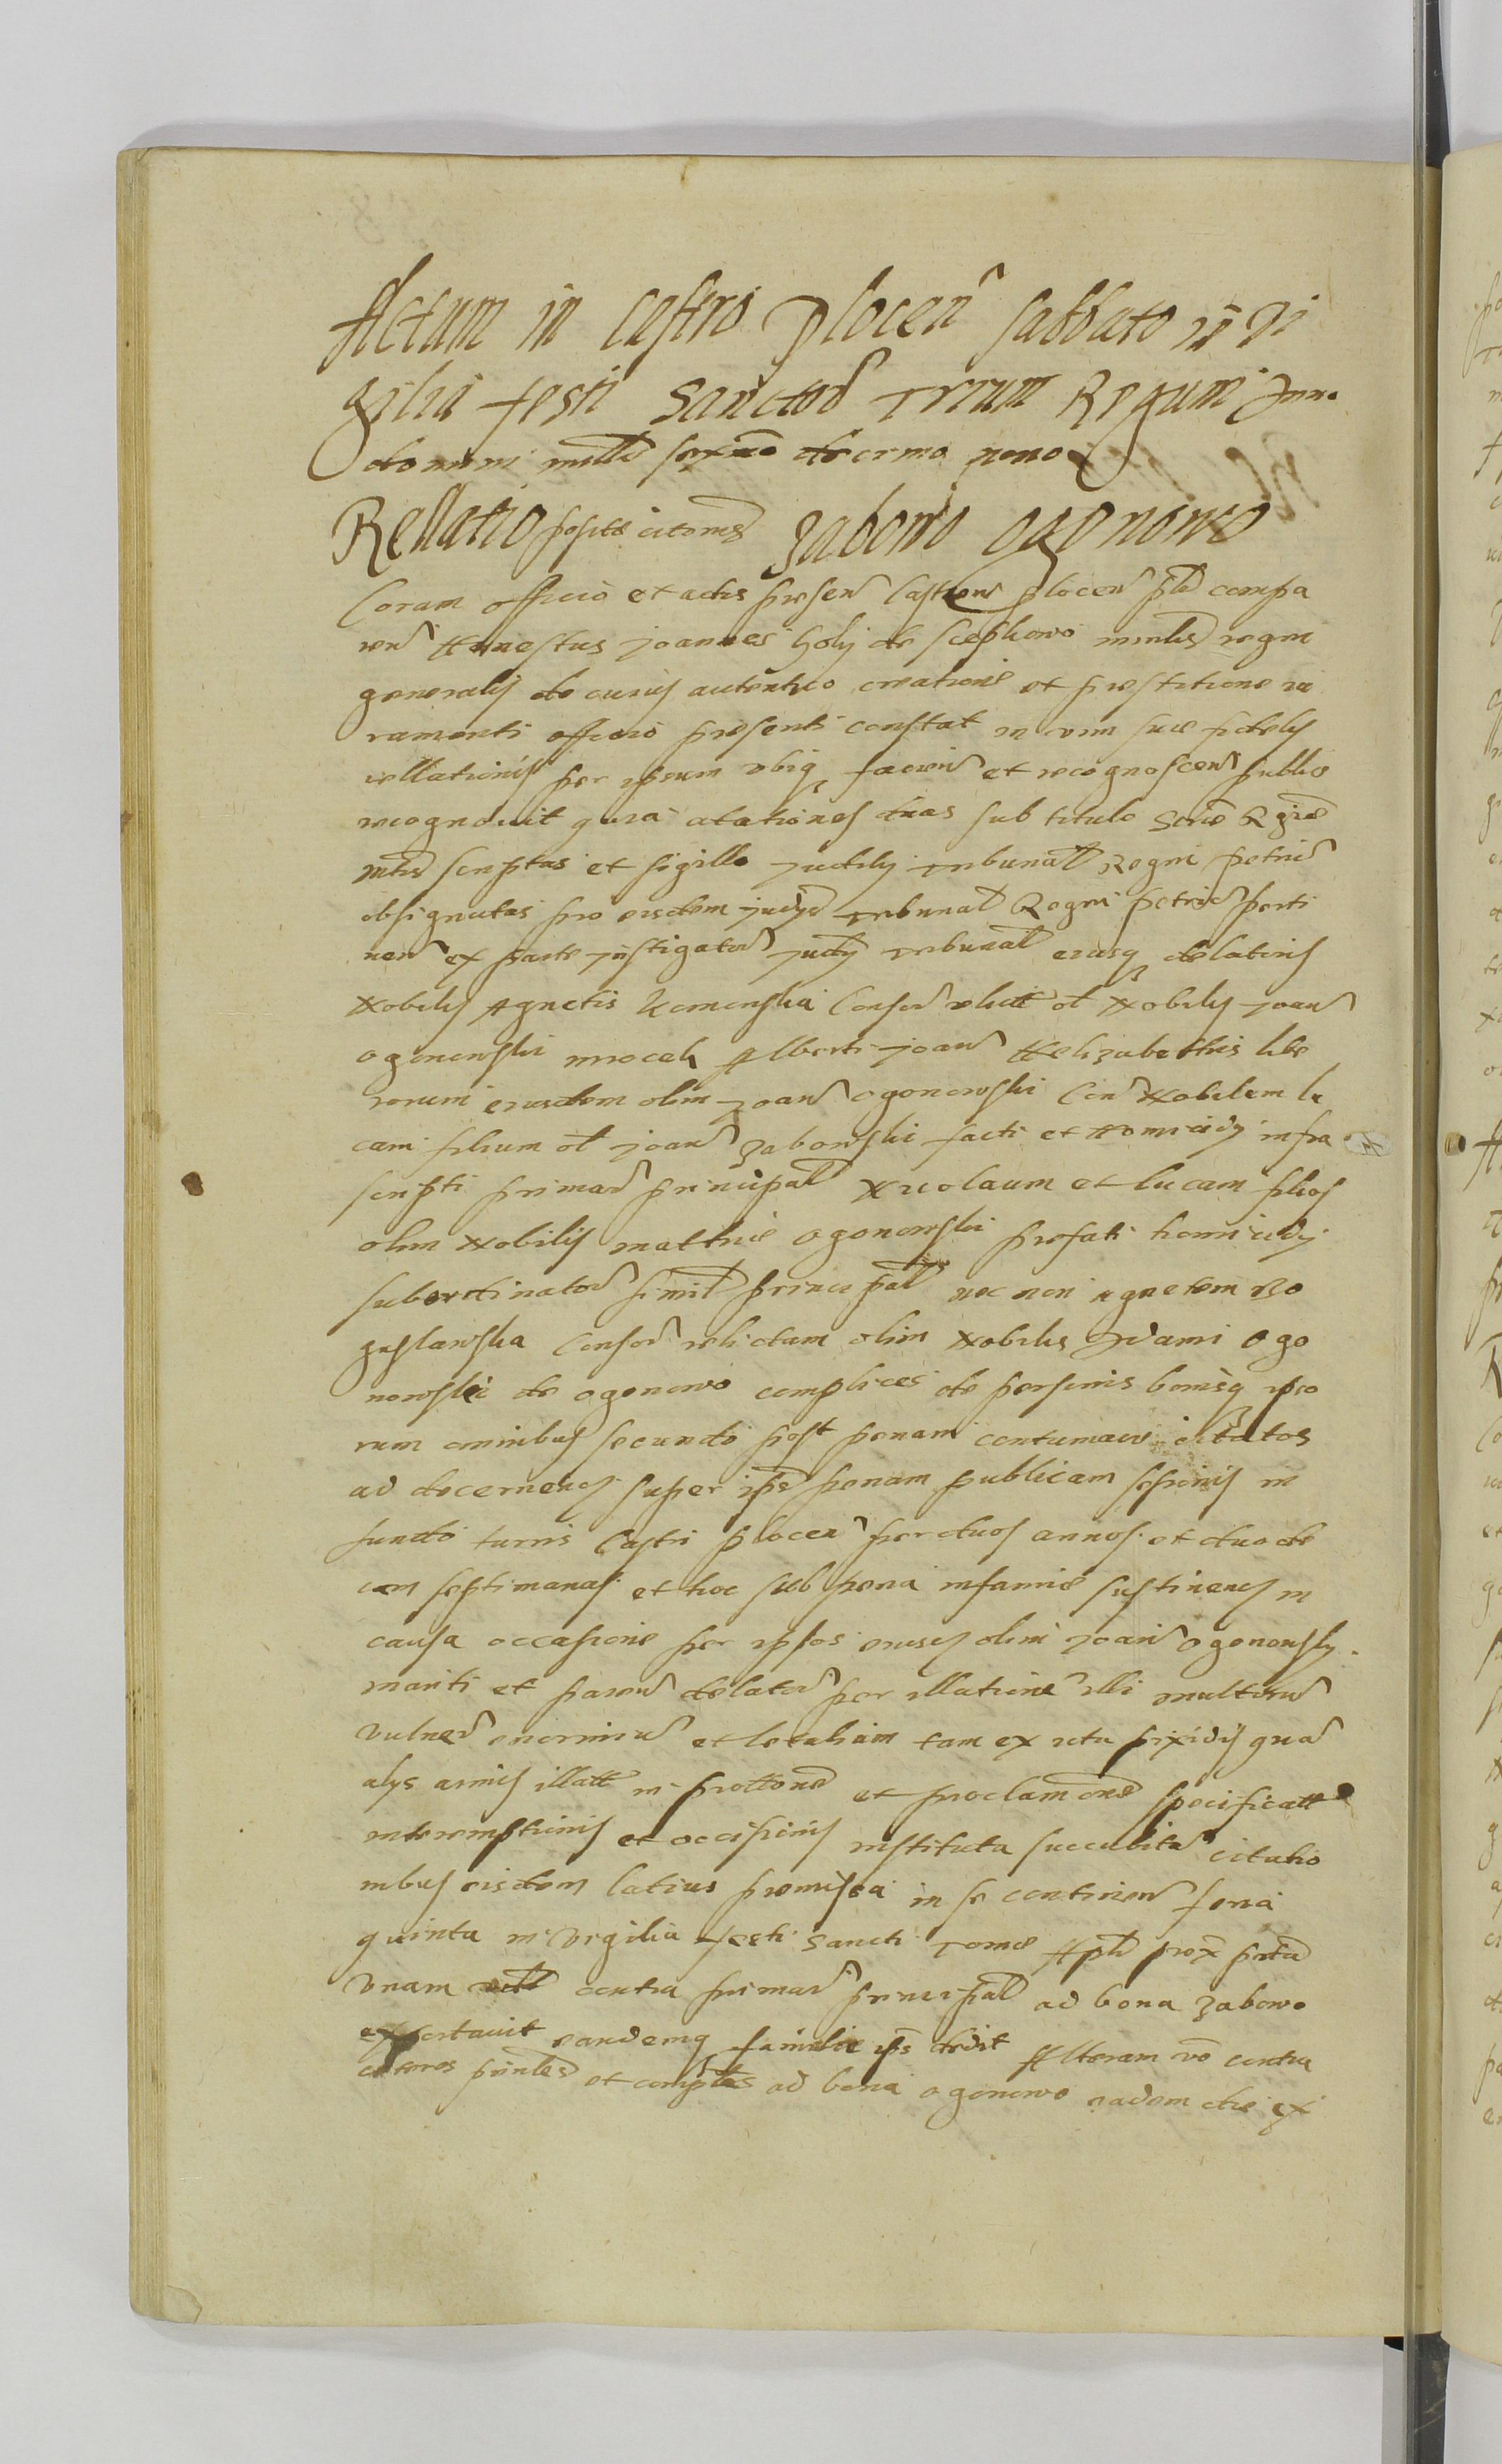 Actum in Castro Plocen sabbato in Vi
gilia festi Sanctor Trium Regum Anno
domini mill sexto decimo nono
Rellatio posite citonis Zabowo Ogonowo
Coram officio et actis presen Castren Plocen pls compa
ren Honestus Joannes Goly de Scephowo minlis regni
generalis de cuius autentico creatione et prestitione iu
ramenti officio presenti constat in vim sue fidelis
rellationis per ipsum ubiq faciend et recognoscend publice
recognovit quia citationes duas sub titulo Scrae Rgiae
mtis scriptas et sigillo Judicy Tribunal Regni Petric
obsignatas pro eisdem Judys Tribunal Regni Petric perti
nen ex parte Instigator Judy Tribunal eiusq delatricis
Nobilis Agnetis Komenska Consor relictae ol Nobilis Joan
Ogonowski necnoh Alberti Joan Helizabethis libe
rorum eiusdem olim Joan Ogonowski Con Nobilem lu
cam filium ol Joan Zabowski facti et Homicidy infra
scripti primar principal Nicolaum et Lucam filios
olim Nobilis Mathie Ogonowski prefati homicidy
subordinator simil principal nec non Agnetem Bo
guslawska Consor relictam olim Nobilis Adami Ogo
nowski de Ogonowo complices de personis bonisq ipso
rum omnibus secundo post penam contumacie citatos
ad decernend super ipsis penam publicam sessionis in
fundo turris Castri Plocen per duos annos et duode
cem septimanas et hoc sub pena infamie sustinend in
causa occasione per ipsos eiusd olim Joan Ogonowsky
mariti et paren delator per illatione illi multorum
vulner enormium et letalium tam ex ictu pixidis quam
alys armis illatt in prottone et proclamone specificatt
interemptionis et occisionis instituta succubita citatio
nibus eisdem latius premissa in se continen feria
quinta in vigilia festi Sancti Tome Apli prox prta
unam contra primar principal ad bona Zabowo
exportavit eandemq familie ips dedit Alteram vo contra
ceteros prinles et complces ad bona Ogonowo eadem die ex